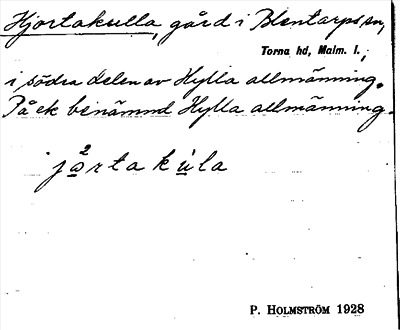 Hjortakulla, gård i Blentarps sn,
Torna hd, Malm. l.;
i södra delen av Hylla allmänning.
På ek benämnd Hylla allmänning.
jårtakula
P. HOLMSTRÖM 1928